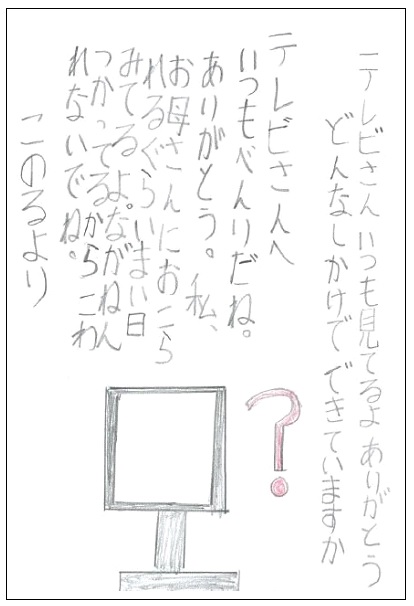 テレビさん いつも見てるよ ありがとう
どんなしかけで できていますか
テレビさんへ
いつもべんりだね。
ありがとう。私、
お母さんにおこら
れるぐらいまい日
みてるよ。ながねん
つかってるから こわ
れないでね。
このるより
?